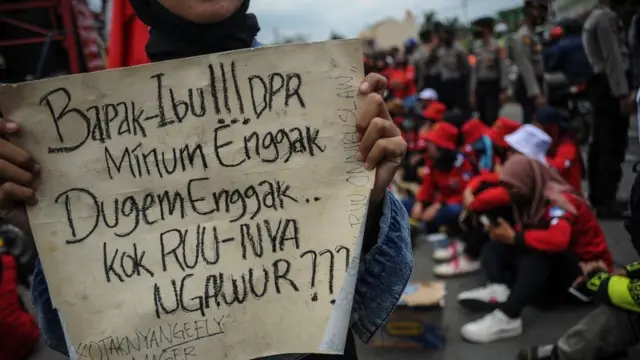 Bapak-Ibu!!! DPR
Minum Enggak
Dugem Enggak..
kok RUU-NYA
NGAWUR???
KOTAKNYANGEELY